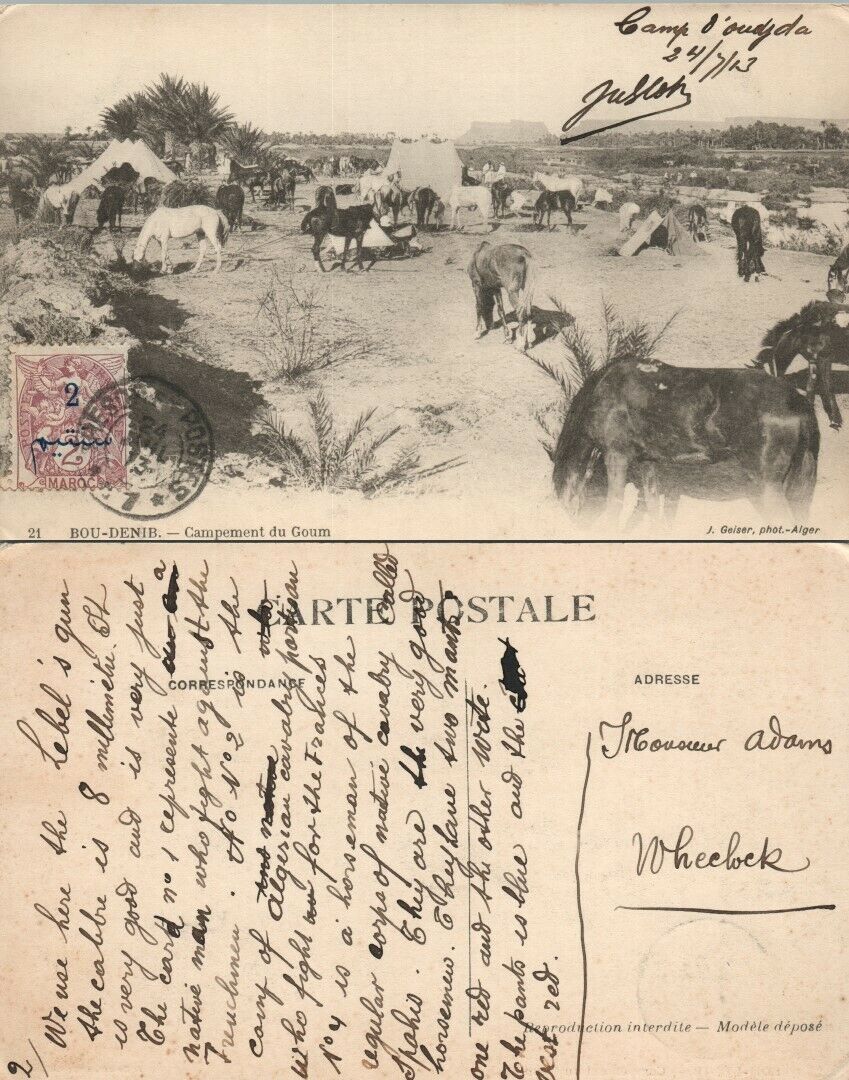 Camp d'oudjda
24/7/13
2
سنتيم
POSTES
2
MAROC
POSTES
24
13
21 BOU-DENIB. — Campement du Goum
J. Geiser, phot.-Alger
CARTE POSTALE
CORRESPONDANCE
ADRESSE
2/ We use here the Lebel's gun
the calibre is 8 millimetre. It
is very good and is very just
The card no 1 represente a
native man who fight against the
Frenchmen. No 2 is the
camp of Algerian cavalry partisan
who fight for the Frances
No 4 is a horseman of the
regular corps of native cavalry called
Spahis. They are very good
horsemen. They have two mants
one red and the other wite.
The pants is blue and the
vest red.
Monsieur Adams
Wheelock
Reproduction interdite — Modèle déposé